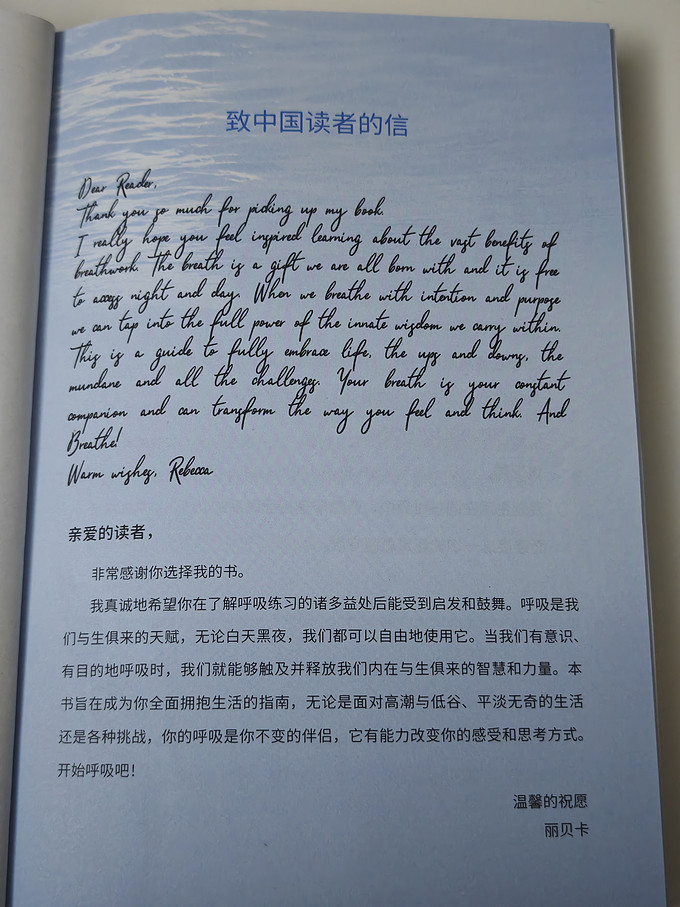 致中国读者的信
Dear Reader,
Thank you so much for picking up my book.
I really hope you feel inspired learning about the vast benefits of
breathwork. The breath is a gift we are all born with and it is free
to access night and day. When we breathe with intention and purpose
we can tap into the full power of the innate wisdom we carry within.
This is a guide to fully embrace life, the ups and downs, the
mundane and all the challenges. Your breath is your constant
companion and can transform the way you feel and think. And
Breathe!
Warm wishes, Rebecca
亲爱的读者，
非常感谢你选择我的书。
我真诚地希望你在了解呼吸练习的诸多益处后能受到启发和鼓舞。呼吸是我
们与生俱来的天赋，无论白天黑夜，我们都可以自由地使用它。当我们有意识、
有目的地呼吸时，我们就能够触及并释放我们内在与生俱来的智慧和力量。本
书旨在成为你全面拥抱生活的指南，无论是面对高潮与低谷、平淡无奇的生活
还是各种挑战，你的呼吸是你不变的伴侣，它有能力改变你的感受和思考方式。
开始呼吸吧！
温馨的祝愿
丽贝卡